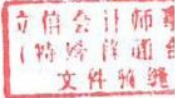 立信会计师事
（特殊普通合
文件骑缝